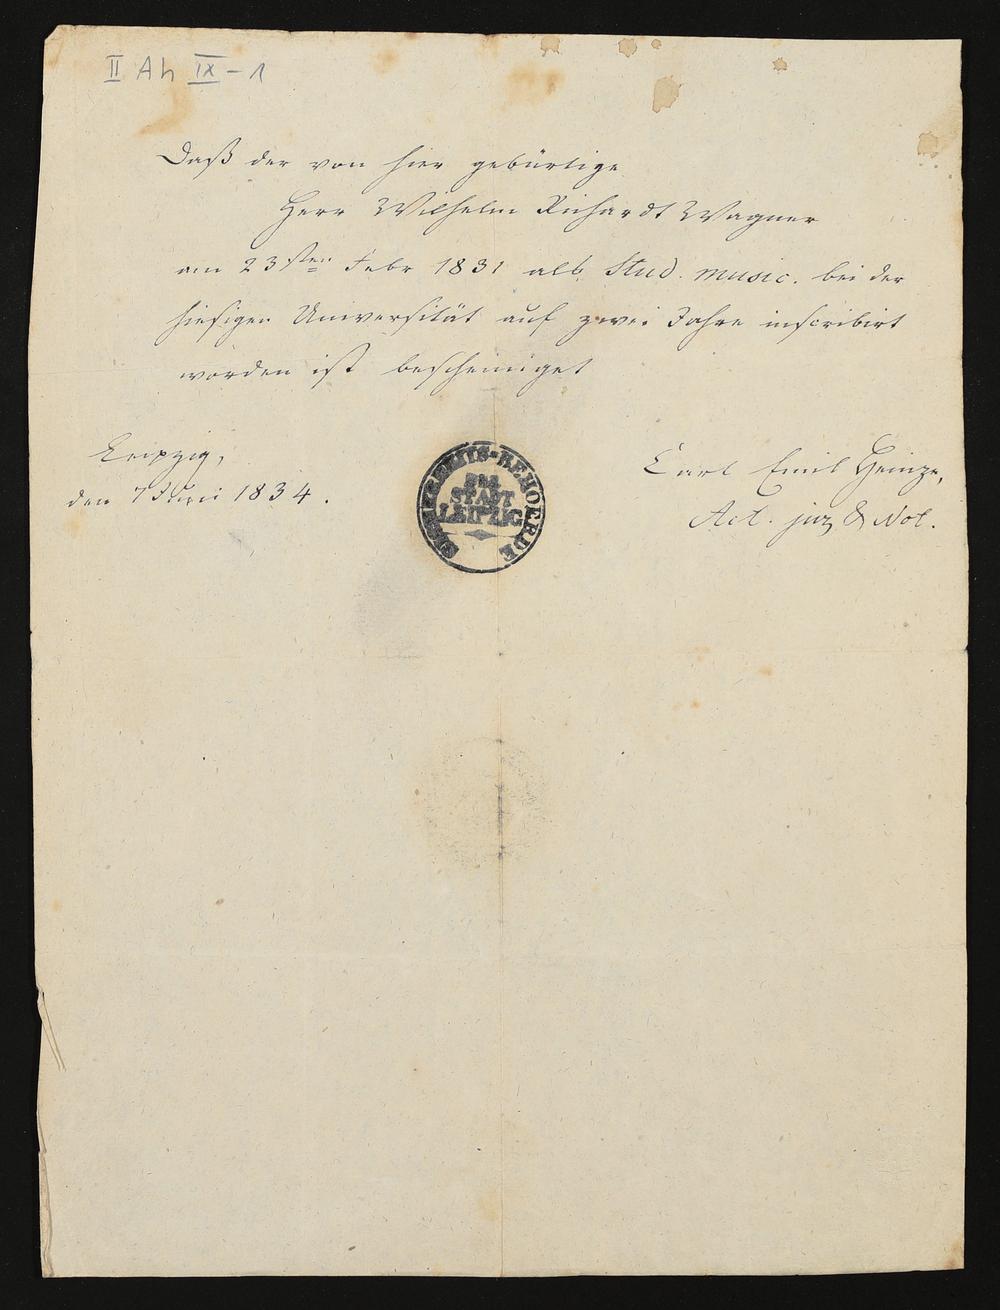 II Ah IX - 1
Daß der von hier gebürtige
Herr Wilhelm Richardt Wagner
am 23sten Febr 1831 als Stud. music. bei der
hiesigen Universität auf zwei Jahre inscribirt
worden ist bescheiniget
Leipzig,
den 7 Juni 1834.
BEHOERDE
DER
STADT
LEIPZIG
Carl Emil Heinze,
Act. jur. & Not.